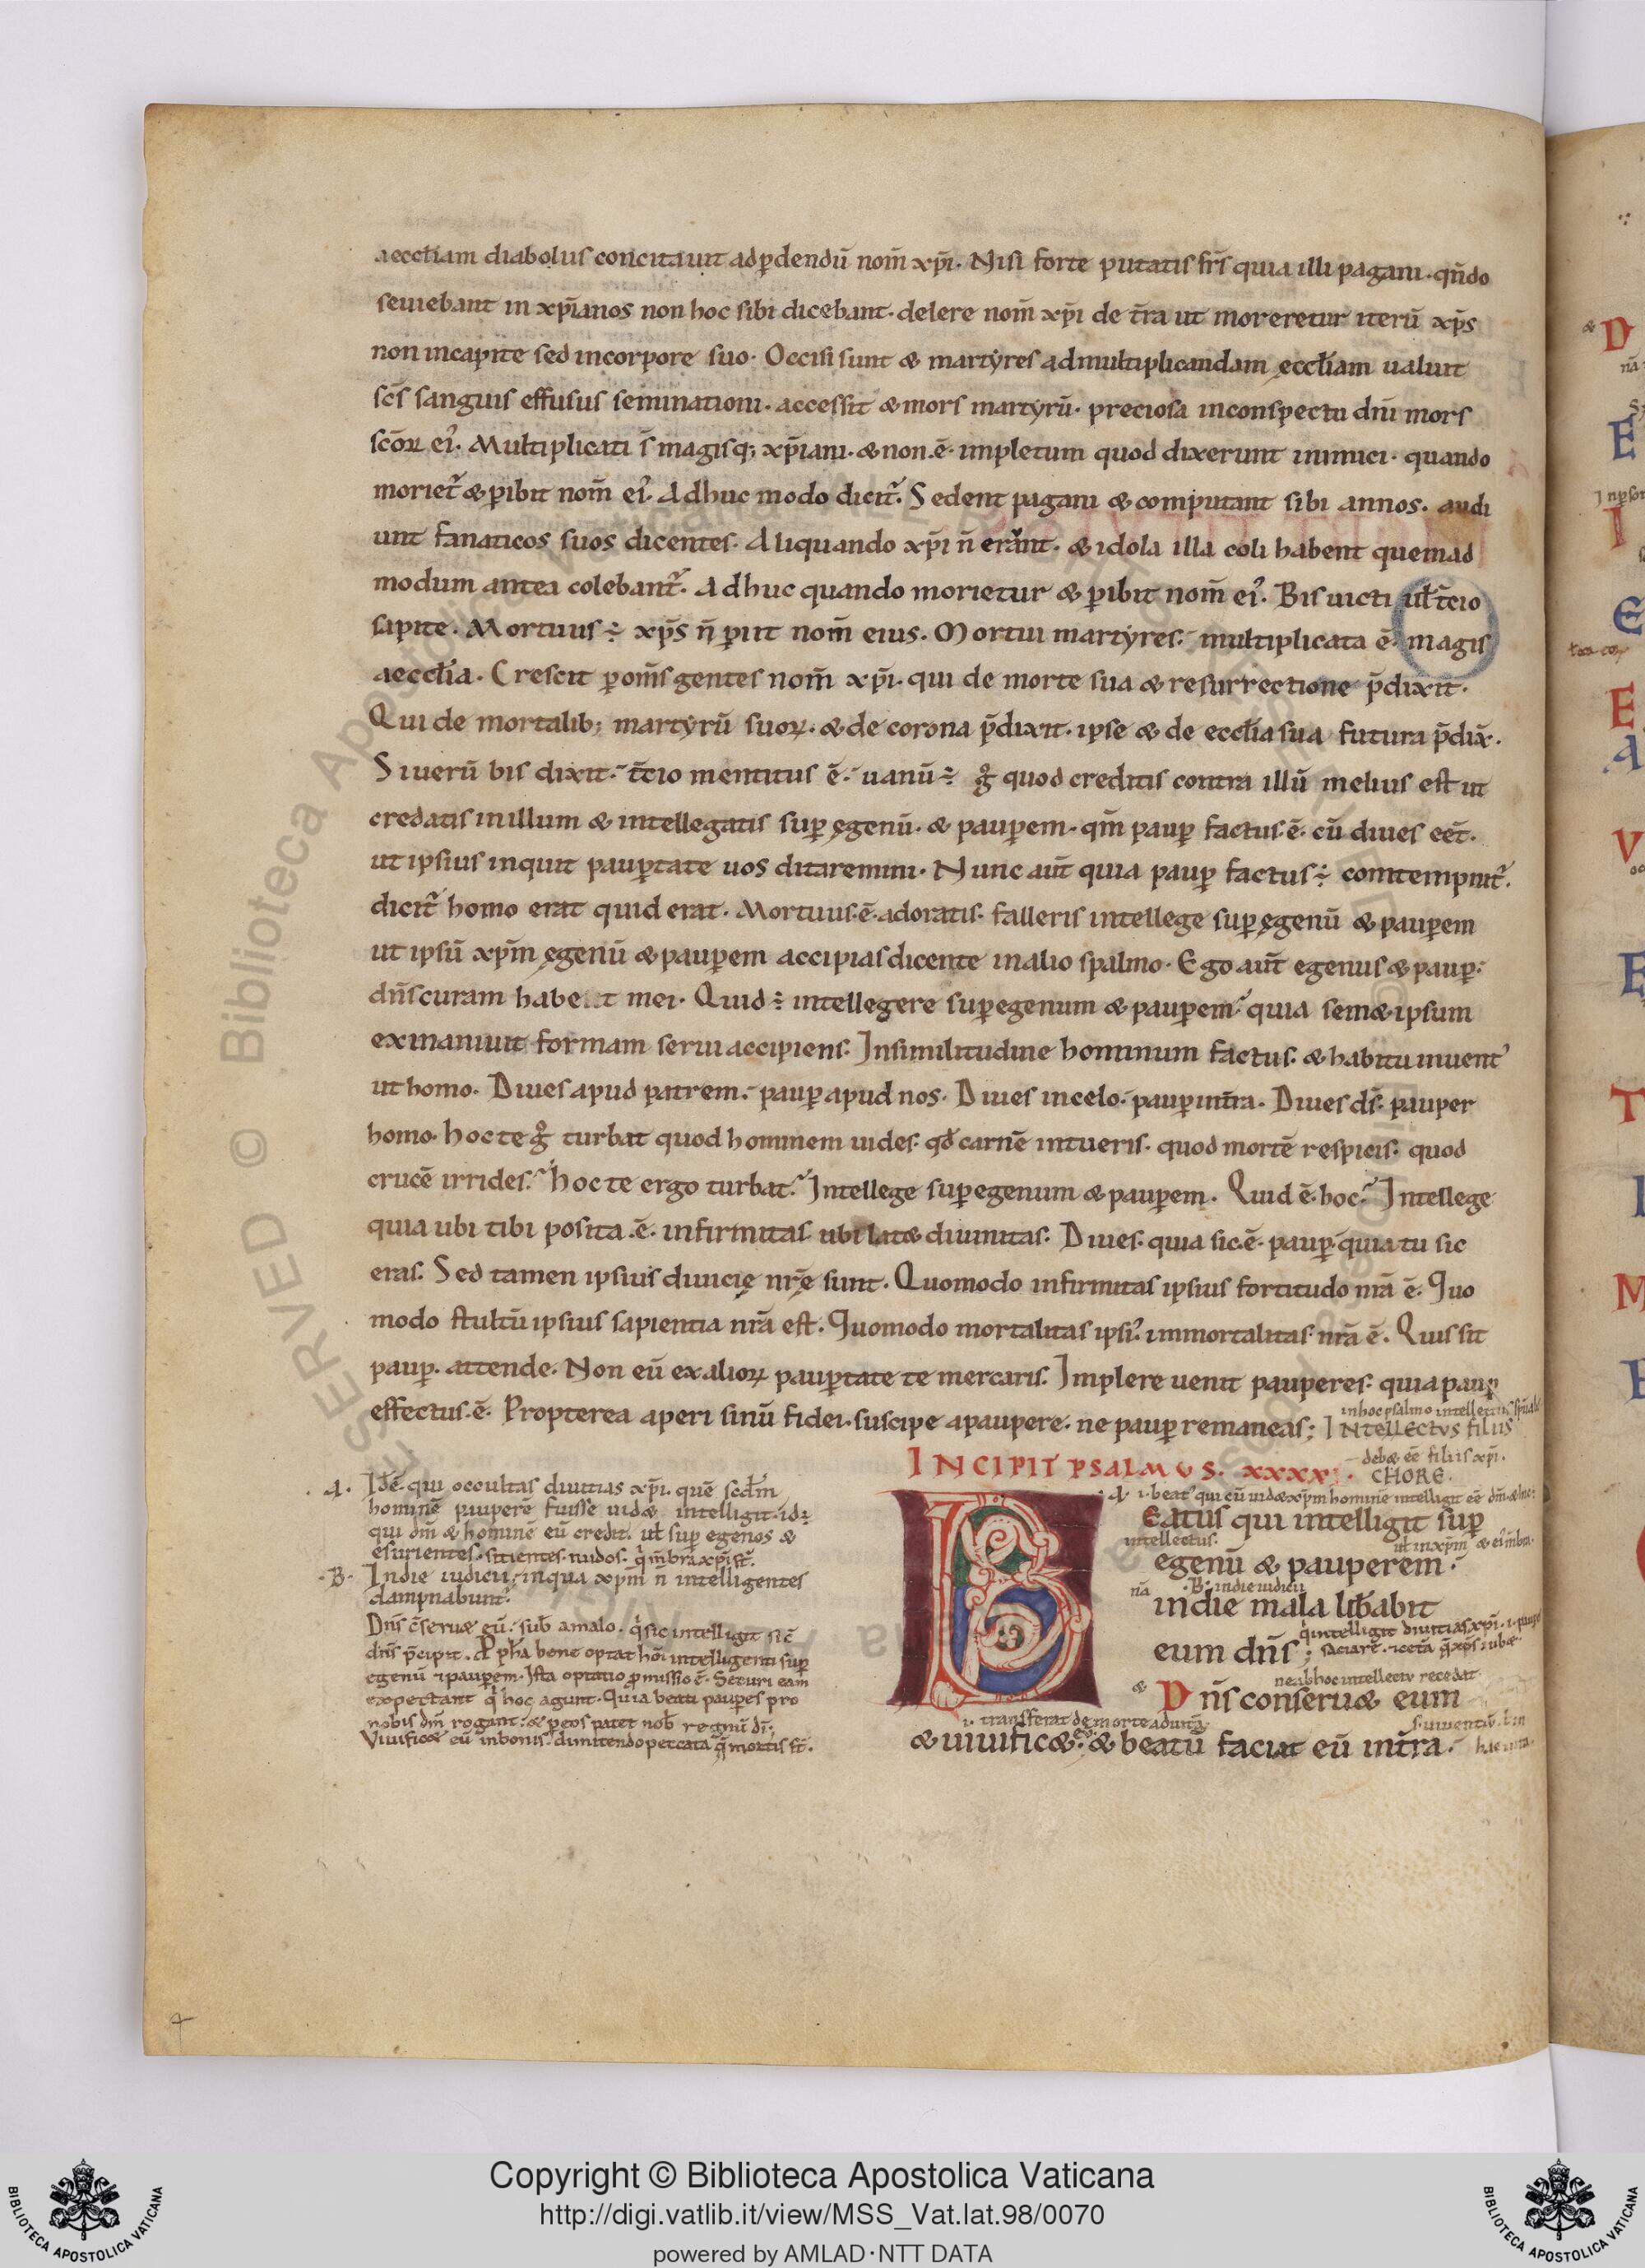 aeccƚiam diabolus concitauit adp̱dendū nom̄ xp̄i. Nisi forte putatis fr̄s quia illi pagani. qn̄do
seuiebant in xp̄ianos non hoc sibi dicebant. delere nom̄ xp̄i de t̄ra ut moreretur iterū xp̄s
non incapite sed incorpore suo. Occisi sunt & martyres admultiplicandam ęccƚiam ualuit
sc̄s sanguis effusus seminationi. accessit & mors martyrū. preciosa inconspectu dn̄i mors
sc̄oꝝ ei᾽. Multiplicati s̄ magisq; xp̄iani. & non.ē. impletum quod dixerunt inimici. quando
moriet᷑ & p̱ibit nom̄ ei᾽. Adhuc modo dicit᷑. Sedent pagani & computant sibi annos. audi
unt fanaticos suos dicentes. Aliquando xp̄i n̄ erant. & idola illa coli habent quemad
modum antea colebant᷑. Adhuc quando morietur & p̱ibit nom̄ ei᾽. Bis uicti uƚ t̄cio
sapite. Mortuus ÷ xp̄s n̄ p̱iit nom̄ eius. Mortui martyres. multiplicata ē. magis
aeccƚia. Crescit p̱ om̄s gentes nom̄ xp̄i. qui de morte sua & resurrectione p̄dixit.
Qui de mortalib; martyrū suoꝝ. & de corona p̄dixit. ipse & de eccƚia sua futura p̄dix̄.
Si uerū bis dixit. t̄cio mentitus ē. uanū ÷ g̊ quod creditis contra illū melius est ut
credatis inillum & intellegatis sup̱ ęgenū. & paup̱em. qm̄ paup̱ factus.ē. cū diues eēt.
ut ipsius inquit paup̱tate uos ditaremini. Nunc aūt quia paup̱ factus ÷ comtempnit᷑.
dicit᷑ homo erat quid erat. Mortuus.ē. adoratis. falleris intellege sup̱ ęgenū & paup̱em
ut ipsū xp̄m ęgenū & paup̱em accipias dicente inalio spalmo. Ego aūt egenus & paup̱.
dn̄s curam habet mei. Quid ÷ intellegere sup̱ egenum & paup̱em. quia sem&ipsum
exinaniuit formam serui accipiens. Insimilitudine hominum factus. & habitu inuent᾽
ut homo. Diues apud patrem. paup̱ apud nos. Diues incelo. paup̱ int̄ra. Diues ds̄. pauper
homo. hoc te g̊ turbat quod hominem uides. qđ carnē intueris. quod mortē respicis. quod
crucē irrides. hoc te ergo turbat. Intellege sup̱ egenum & paup̱em. Quid ē. hoc. Intellege
quia ubi tibi posita.ē. infirmitas. ubi lat& diuinitas. Diues. quia sic.ē. paup̱. quia tu sic
eras. Sed tamen ipsius diuicię nr̄ę sunt. Quomodo infirmitas ipsius fortitudo nr̄a ē. Quo
modo stultū ipsius sapientia nr̄a est. Quomodo mortalitas ipsi᾽. immortalitas nr̄a ē. Quis sit
paup̱. attende. Non eū ex alioꝝ paup̱tate te mercaris. Implere uenit pauperes. quia paup̱
effectus.ē. Propterea aperi sinū fidei. suscipe apaupere. ne paup̱ remaneas;
inhoc psalmo
INtellectus filiis
debet eē filiis xp̄i.
INCIPIT PSALMUS. XXXX. CHORE.
.A. Idē. qui occultas diuitias xp̄i. quē scđm
hominē pauperē fuisse uid& intelligit. id÷
qui dm̄ & hominē eū credit. uƚ sup̱ egenos &
esurientes. sitientes. nudos.
.B. Indie iudicii. inqua xp̄m n̄ intelligentes
dampnabunt᷑.
Dn̄s c̄seru& eū. sub amalo. q sic intelligit sic
dn̄s p̄cipit. bene optat intelligenti sup̱
egenū paup̱em. Ista optatio p̱missio ē. Securi eam
expectant q hoc agunt. Quia beati paup̱es pro
nobis dm̄ rogant. & p̱ eos patet nob regnū di.
Viuific& eū inbonis. dimitendo peccata mortis st̄.
.A. i. beat᾽ qui cū uid& xp̄m hominē intelligit eē dm̄.
Beatus qui intelligit sup̱
intellectus.
egenū & pauperem.
.B. indie iudicii
indie mala lib̄abit
q intelligit diuitias xp̄i.
eum dn̄s;
ne ab hoc intellectu recedat
Dn̄s conseru& eum
i. transferat de morte
& uiuific&. & beatū faciat eū int̄ra.
Copyright © Biblioteca Apostolica Vaticana
http://digi.vatlib.it/view/MSS_Vat.lat.98/0070
powered by AMLAD·NTT DATA
BIBLIOTECA APOSTOLICA VATICANA
BIBLIOTECA APOSTOLICA VATICANA